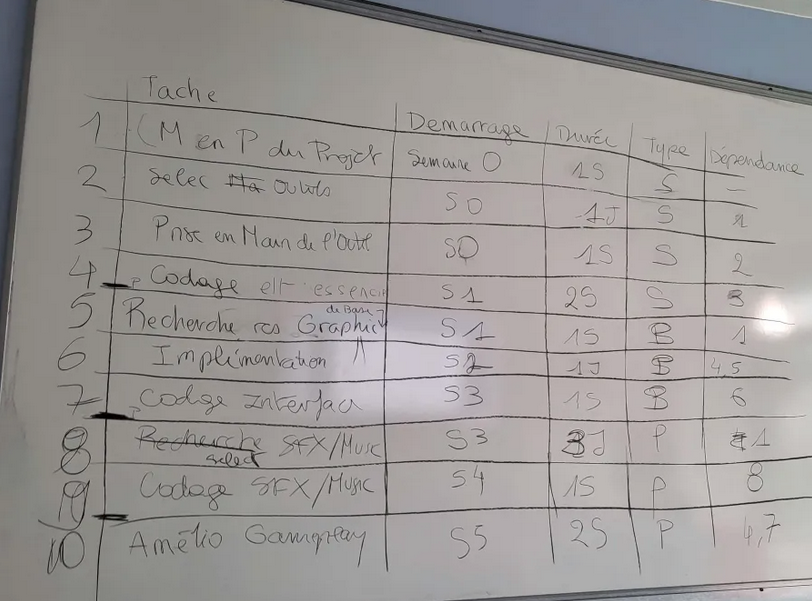 Tache Demarrage Durée Type Dépendance
1 (M en P du Projet Semaine 0 1S S –
2 Selec Outils S0 1J S 1
3 Prise en Main de l'Outil S0 1S S 2
4 Codage elt essenci S1 2S S 3
de Base
5 Recherche rcs Graphic S1 1S B 1
6 Implémentation S2 1J B 4,5
7 Codage Interface S3 1S B 6
8 Recherche SFX/Music S3 3J P 1
select
9 Codage SFX/Music S4 1S P 8
10 Amélio Gameplay S5 2S P 4,7